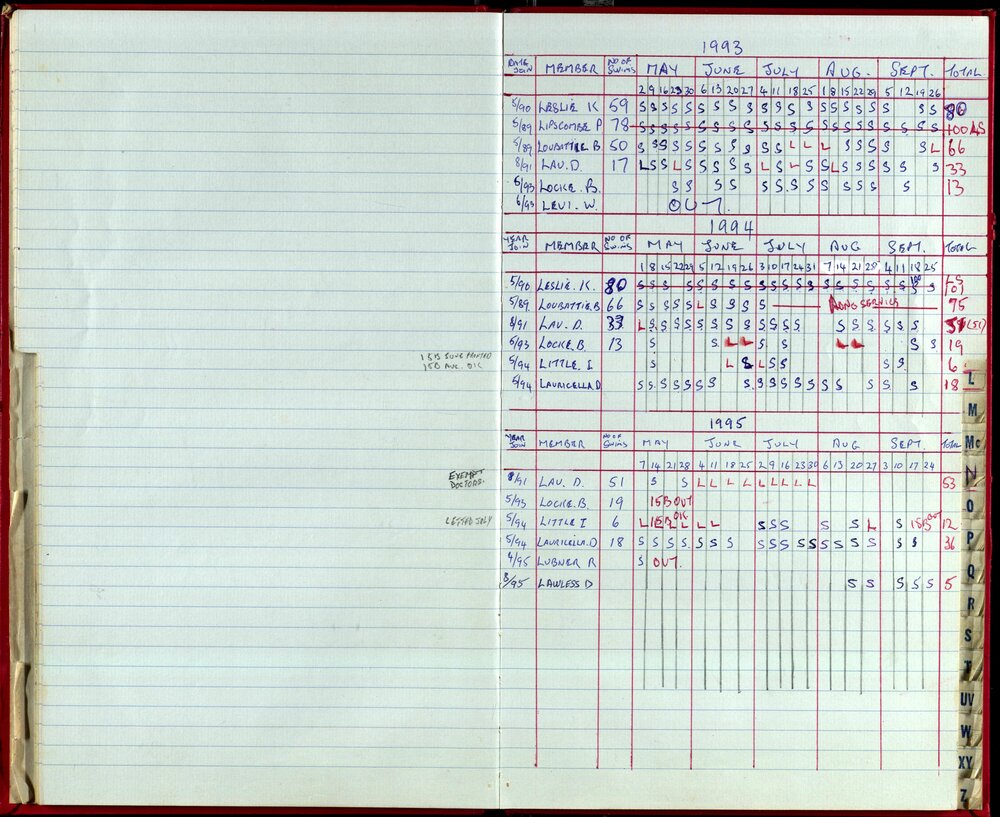 1993
DATE JOIN MEMBER NO OF SWIMS MAY JUNE JULY AUG. SEPT. TOTAL
2 9 16 23 30 6 13 20 27 4 11 18 25 1 8 15 22 29 5 12 19 26
5/90 LESLIE K 59 S S S S S S S S S S S S S S S S S S S S S 80
5/89 LIPSCOMBE P 78 S S S S S S S S S S S S S S S S S S S S S S 100 AS
5/89 LOUBATTIE B 50 S S S S S S S S S S S L L L S S S S L 66
8/91 LAU. D. 17 L S S L S S S S S L S L S S L S S S S S S 33
5/93 LOCKE. B. S S S S S S S S S S S S S 13
6/93 LEVI. W. OUT.
1994
YEAR JOIN MEMBER NO OF SWIMS MAY JUNE JULY AUG SEPT. TOTAL
1 8 15 22 29 5 12 19 26 3 10 17 24 31 7 14 21 28 4 11 18 25
5/90 LESLIE. K. 80 S S S S S S S S S S S S S S S S S S S 100 S S
5/89 LOUBATTIE. B 66 S S S S S L S S S S LONG SERVICE 75
8/91 LAU. D. 33 L S S S S S S S S S S S S S S S S S S 51 (51)
5/93 LOCKE. B 13 S S L L S S L L S S 19
5/94 LITTLE. I S L S L S S S S 6
5/94 LAURICELLA D S S S S S S S S S S S S S S S S S S 18
15B JUNE PRINTED
15B AUG. OK
1995
YEAR JOIN MEMBER NO OF SWIMS MAY JUNE JULY AUG SEPT. TOTAL
7 14 21 28 4 11 18 25 2 9 16 23 30 6 13 20 27 3 10 17 24
EXEMPT
DOCTORS.
8/91 LAU. D. 51 S S L L L L L L L L L 53
5/93 LOCKE. B. 19 15B OUT
5/94 LITTLE I 6 L 15B OK L L L L S S S S S L S 15B OUT 12
5/94 LAURICELLA. D 18 S S S S S S S S S S S S S S S S S S 36
4/95 LUBNER R S OUT.
8/95 LAWLESS D S S S S S 5
L
M
Mc
N
O
P
Q
R
S
T
UV
W
XY
Z